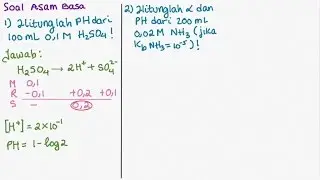 Soal Asam Basa
1) Hitunglah PH dari
100 mL 0,1 M H₂SO₄!
Jawab:
H₂SO₄ → 2H⁺ + SO₄²⁻
M 0,1
R -0,1 +0,2 +0,1
S - 0,2
[H⁺] = 2×10⁻¹
PH = 1 - log2
2) Hitunglah α dan
PH dari 200 mL
0,02 M NH₃ (jika
Kb NH₃ = 10⁻⁵)!